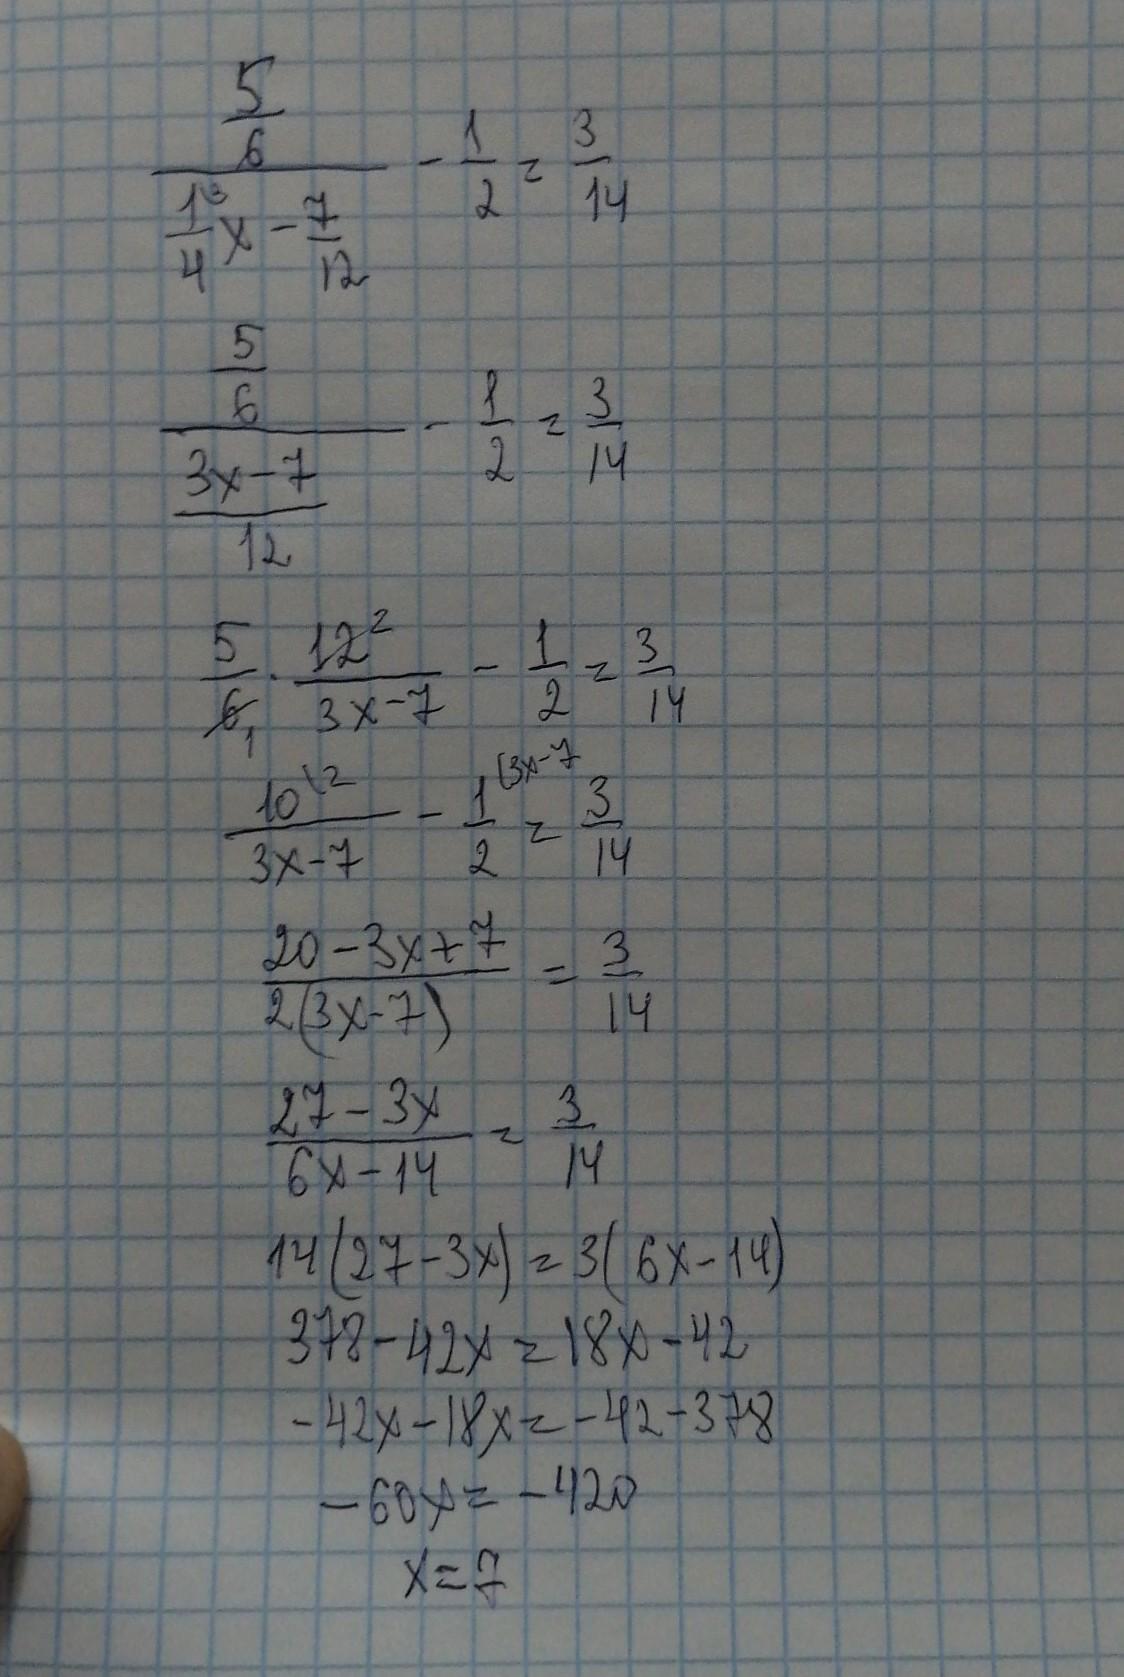 5/6 / (1/4^3 x - 7/12) - 1/2 = 3/14
5/6 / ((3x-7)/12) - 1/2 = 3/14
5/6₁ · 12²/(3x-7) - 1/2 = 3/14
10^(2/(3x-7) - 1^(3x-7/2 = 3/14
(20-3x+7)/(2(3x-7)) = 3/14
(27-3x)/(6x-14) = 3/14
14(27-3x) = 3(6x-14)
378-42x = 18x-42
-42x-18x = -42-378
-60x = -420
x = 7